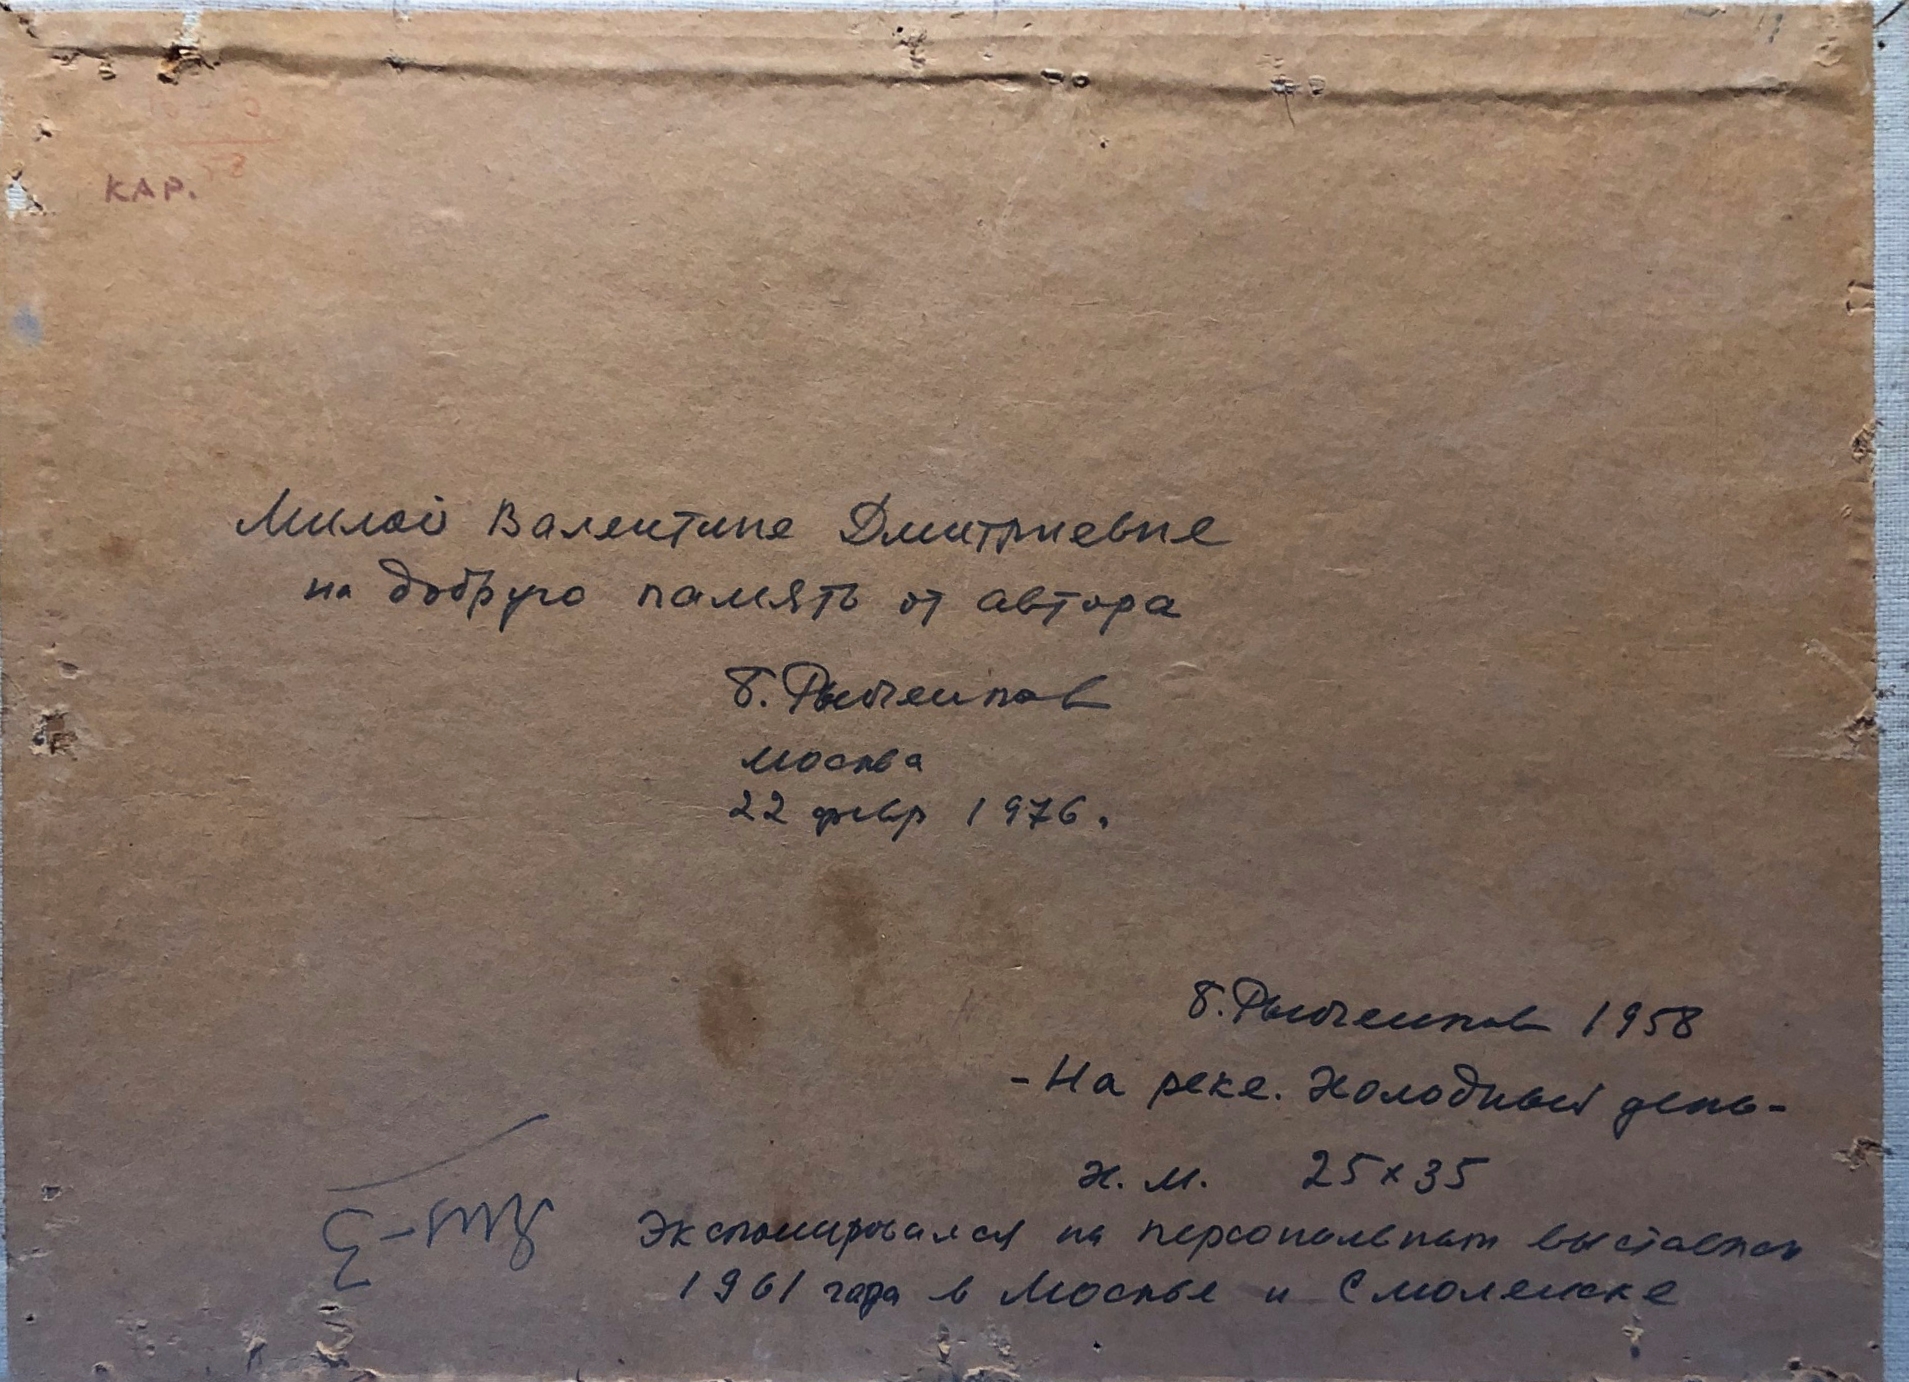 КАР.
Милой Валентине Дмитриевне
на добрую память от автора
Б. Рыбченков
Москва
22 февр 1976.
Б. Рыбченков 1958
- На реке. Холодный день -
х. м. 25 x 35
Экспонировался на персональных выставках
1961 года в Москве и Смоленске